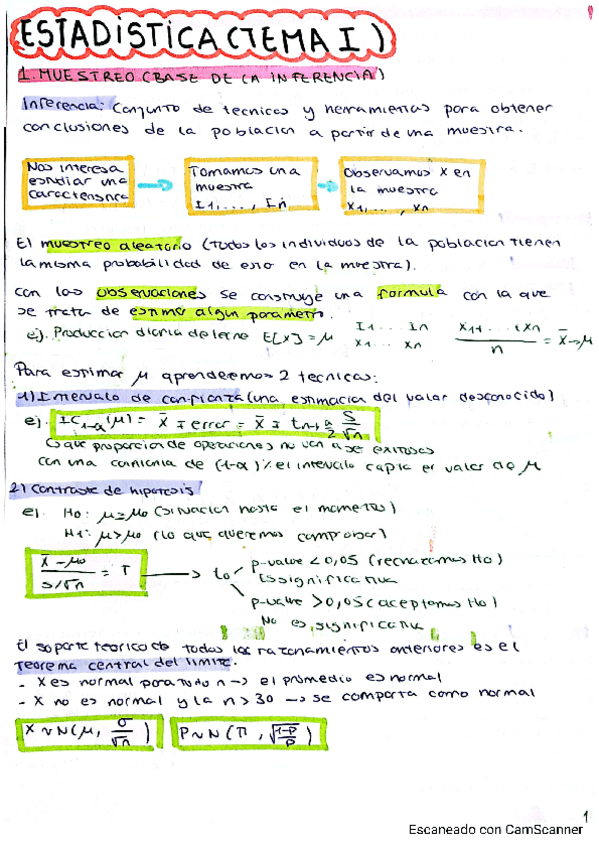 ESTADISTICA (TEMA I)
1. MUESTREO (BASE DE LA INFERENCIA)
Inferencia: Conjunto de tecnicas y herramientas para obtener
conclusiones de la poblacion a partir de una muestra.
Nos interesa
estudiar una
caracteristica
Tomamos una
muestra
I1, ..., In
Observamos X en
la muestra
x1, ..., xn
El muestreo aleatorio (todos los individuos de la poblacion tienen
la misma probabilidad de esto en la muestra).
Con las observaciones se construye una formula con la que
se trata de estimar algun parametro.
ej. Produccion diaria de leche E[X] = μ
I1 ... In
x1 ... xn
x1+...+xn / n = x̄ → μ
Para estimar μ aprenderemos 2 tecnicas:
1) Intervalo de confianza (una estimacion del valor desconocido)
ej. IC1-α(μ) = x̄ ∓ error = x̄ ∓ tn-1, α/2 S/√n
que proporcion de operaciones no van a ser exitosas
con una confianza de (1-α)% el intervalo capta el valor de μ
2) Contraste de hipotesis
ej. H0: μ=μ0 (situacion hasta el momento)
H1: μ>μ0 (lo que queremos comprobar)
x̄-μ0 / s/√n = T → t0
p-value <0,05 (rechazamos H0)
Es significativa
p-value >0,05 (aceptamos H0)
No es significativa
El soporte teorico de todos los razonamientos anteriores es el
teorema central del limite.
- X es normal para todo n → el promedio es normal
- X no es normal y la n > 30 → se comporta como normal
X ~ N(μ, σ/√n)
P ~ N(π, √1-P/P)
1
Escaneado con CamScanner